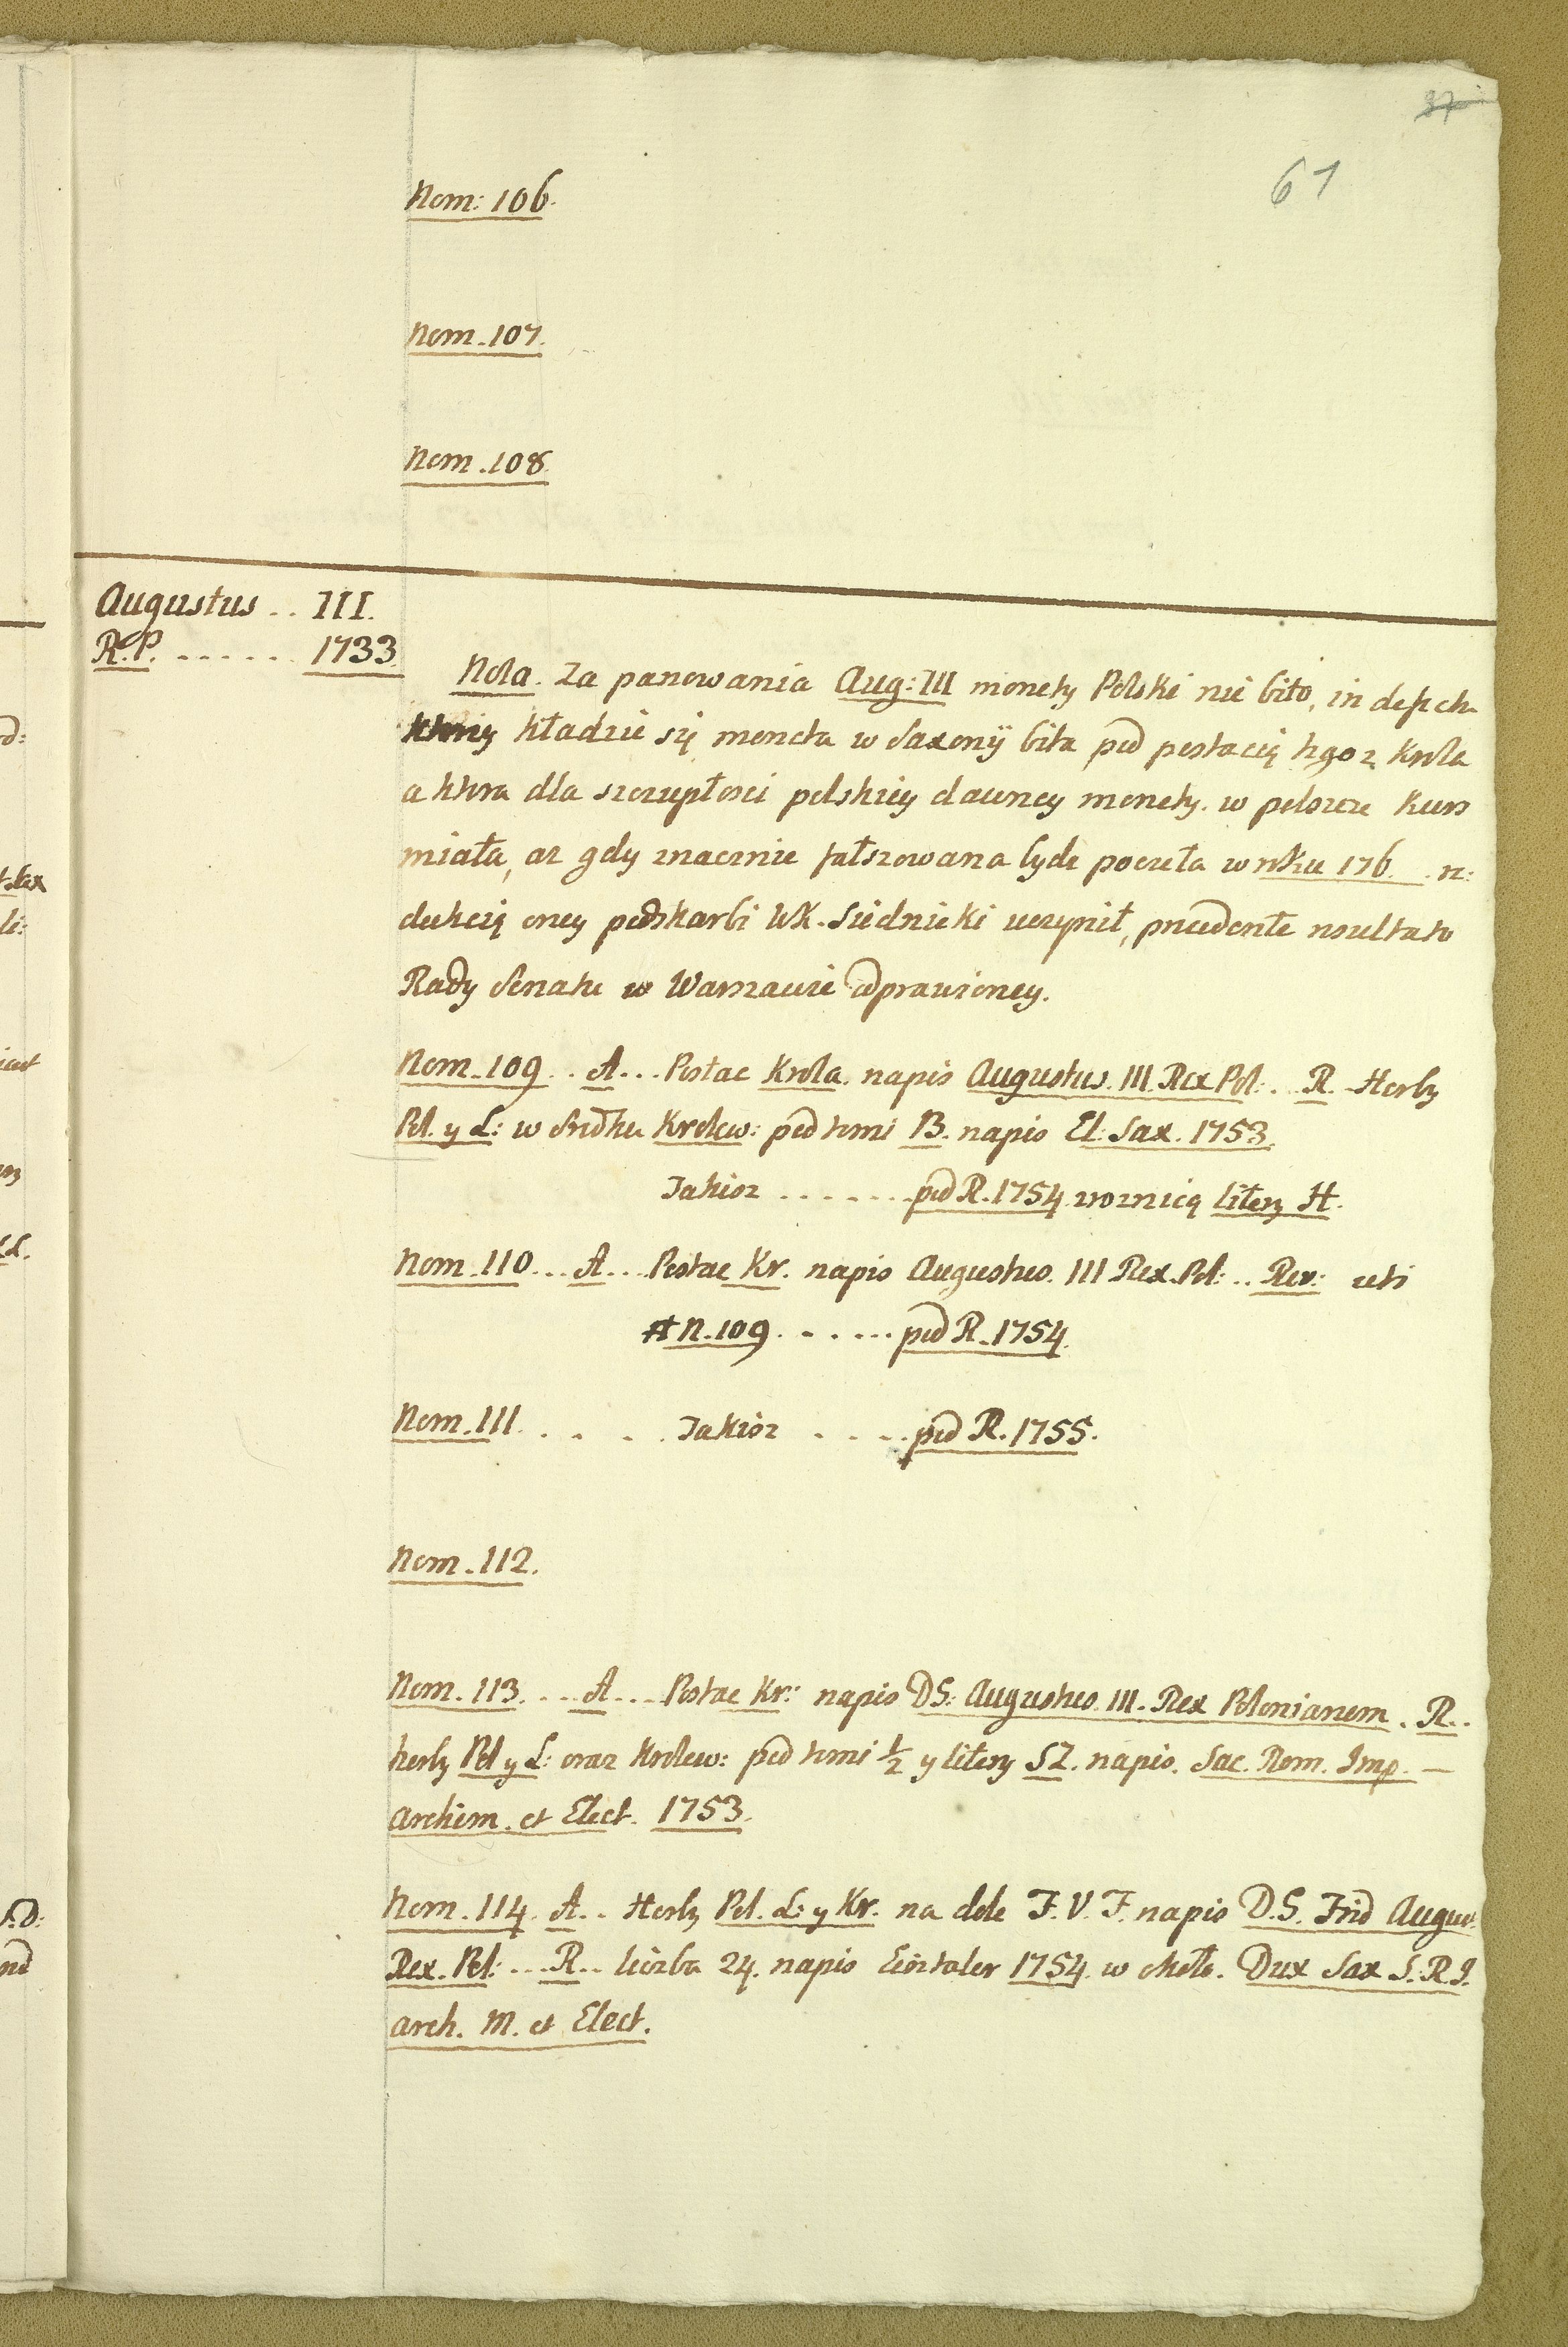 37
61
Nom: 106.
Nom. 107.
Nom. 108.
Augustus .. III.
R.P. ...... 1733
Nota. Za panowania Aug: III monety Polski nie bito, in defectu
kładzie się moneta w Saxonÿ bita pod postacią tegoz Krola
a ktora dla szczupłosci polskiey dawney monety. w polszcze kurs
miała, az gdy znacznie fałszowana bydz poczeła w roku 176 . re:
dukcią oney podskarbi WK. Siednicki uczynił, praecedente resultato
Rady Senatu w Warszawie odprawioney.
Nom. 109 .. A... Postac Krola. napis Augustus. III. Rex Pol: .. R. Herby
Pol. y L: w srodku Krolew: pod temi B. napis El: Sax. 1753.
Takisz ....... pod R. 1754. roznicą litery H.
Nom. 110 ... A... Postac Kr. napis Augustus. III Rex. Pol: .. Rev: uti
N. 109. ..... pod R. 1754.
Nom. 111. . . . . Takisz . . . . pod R. 1755.
Nom. 112.
Nom. 113. ... A... Postac Kr: napis D.S: Augustus. III. Rex Polonianem. R..
herby Pol y L: oraz Krolew: pod temi ½ y litery SZ. napis. Sac. Rom. Imp. —
Archim. et Elect. 1753.
Nom. 114. A.. Herby Pol. L: y Kr. na dole F. V. F. napis D.S. Frid August.
Rex. Pol: ... R.. liczba 24. napis Einthaler 1754. w około. Dux Sax S. R. I.
arch. M. et Elect.